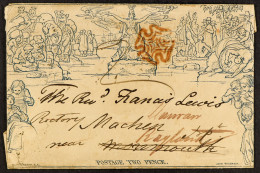 The Revd. Francis Lewis
Rectory Machen
near Monmouth
POSTAGE TWO PENCE.